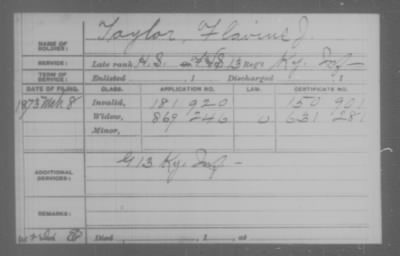 NAME OF SOLDIER: Taylor, Flavius J.
SERVICE: Late rank H.S. F&S 13 Reg't Ky. Inf
TERM OF SERVICE: Enlisted , 1 Discharged , 1
DATE OF FILING. CLASS. APPLICATION NO. LAW. CERTIFICATE NO.
1873 Mch 8 Invalid, 181 920 150 901
Widow, 869 246 631 281
Minor,
ADDITIONAL SERVICES: G 13 Ky. Inf
REMARKS:
Died , 1 , at